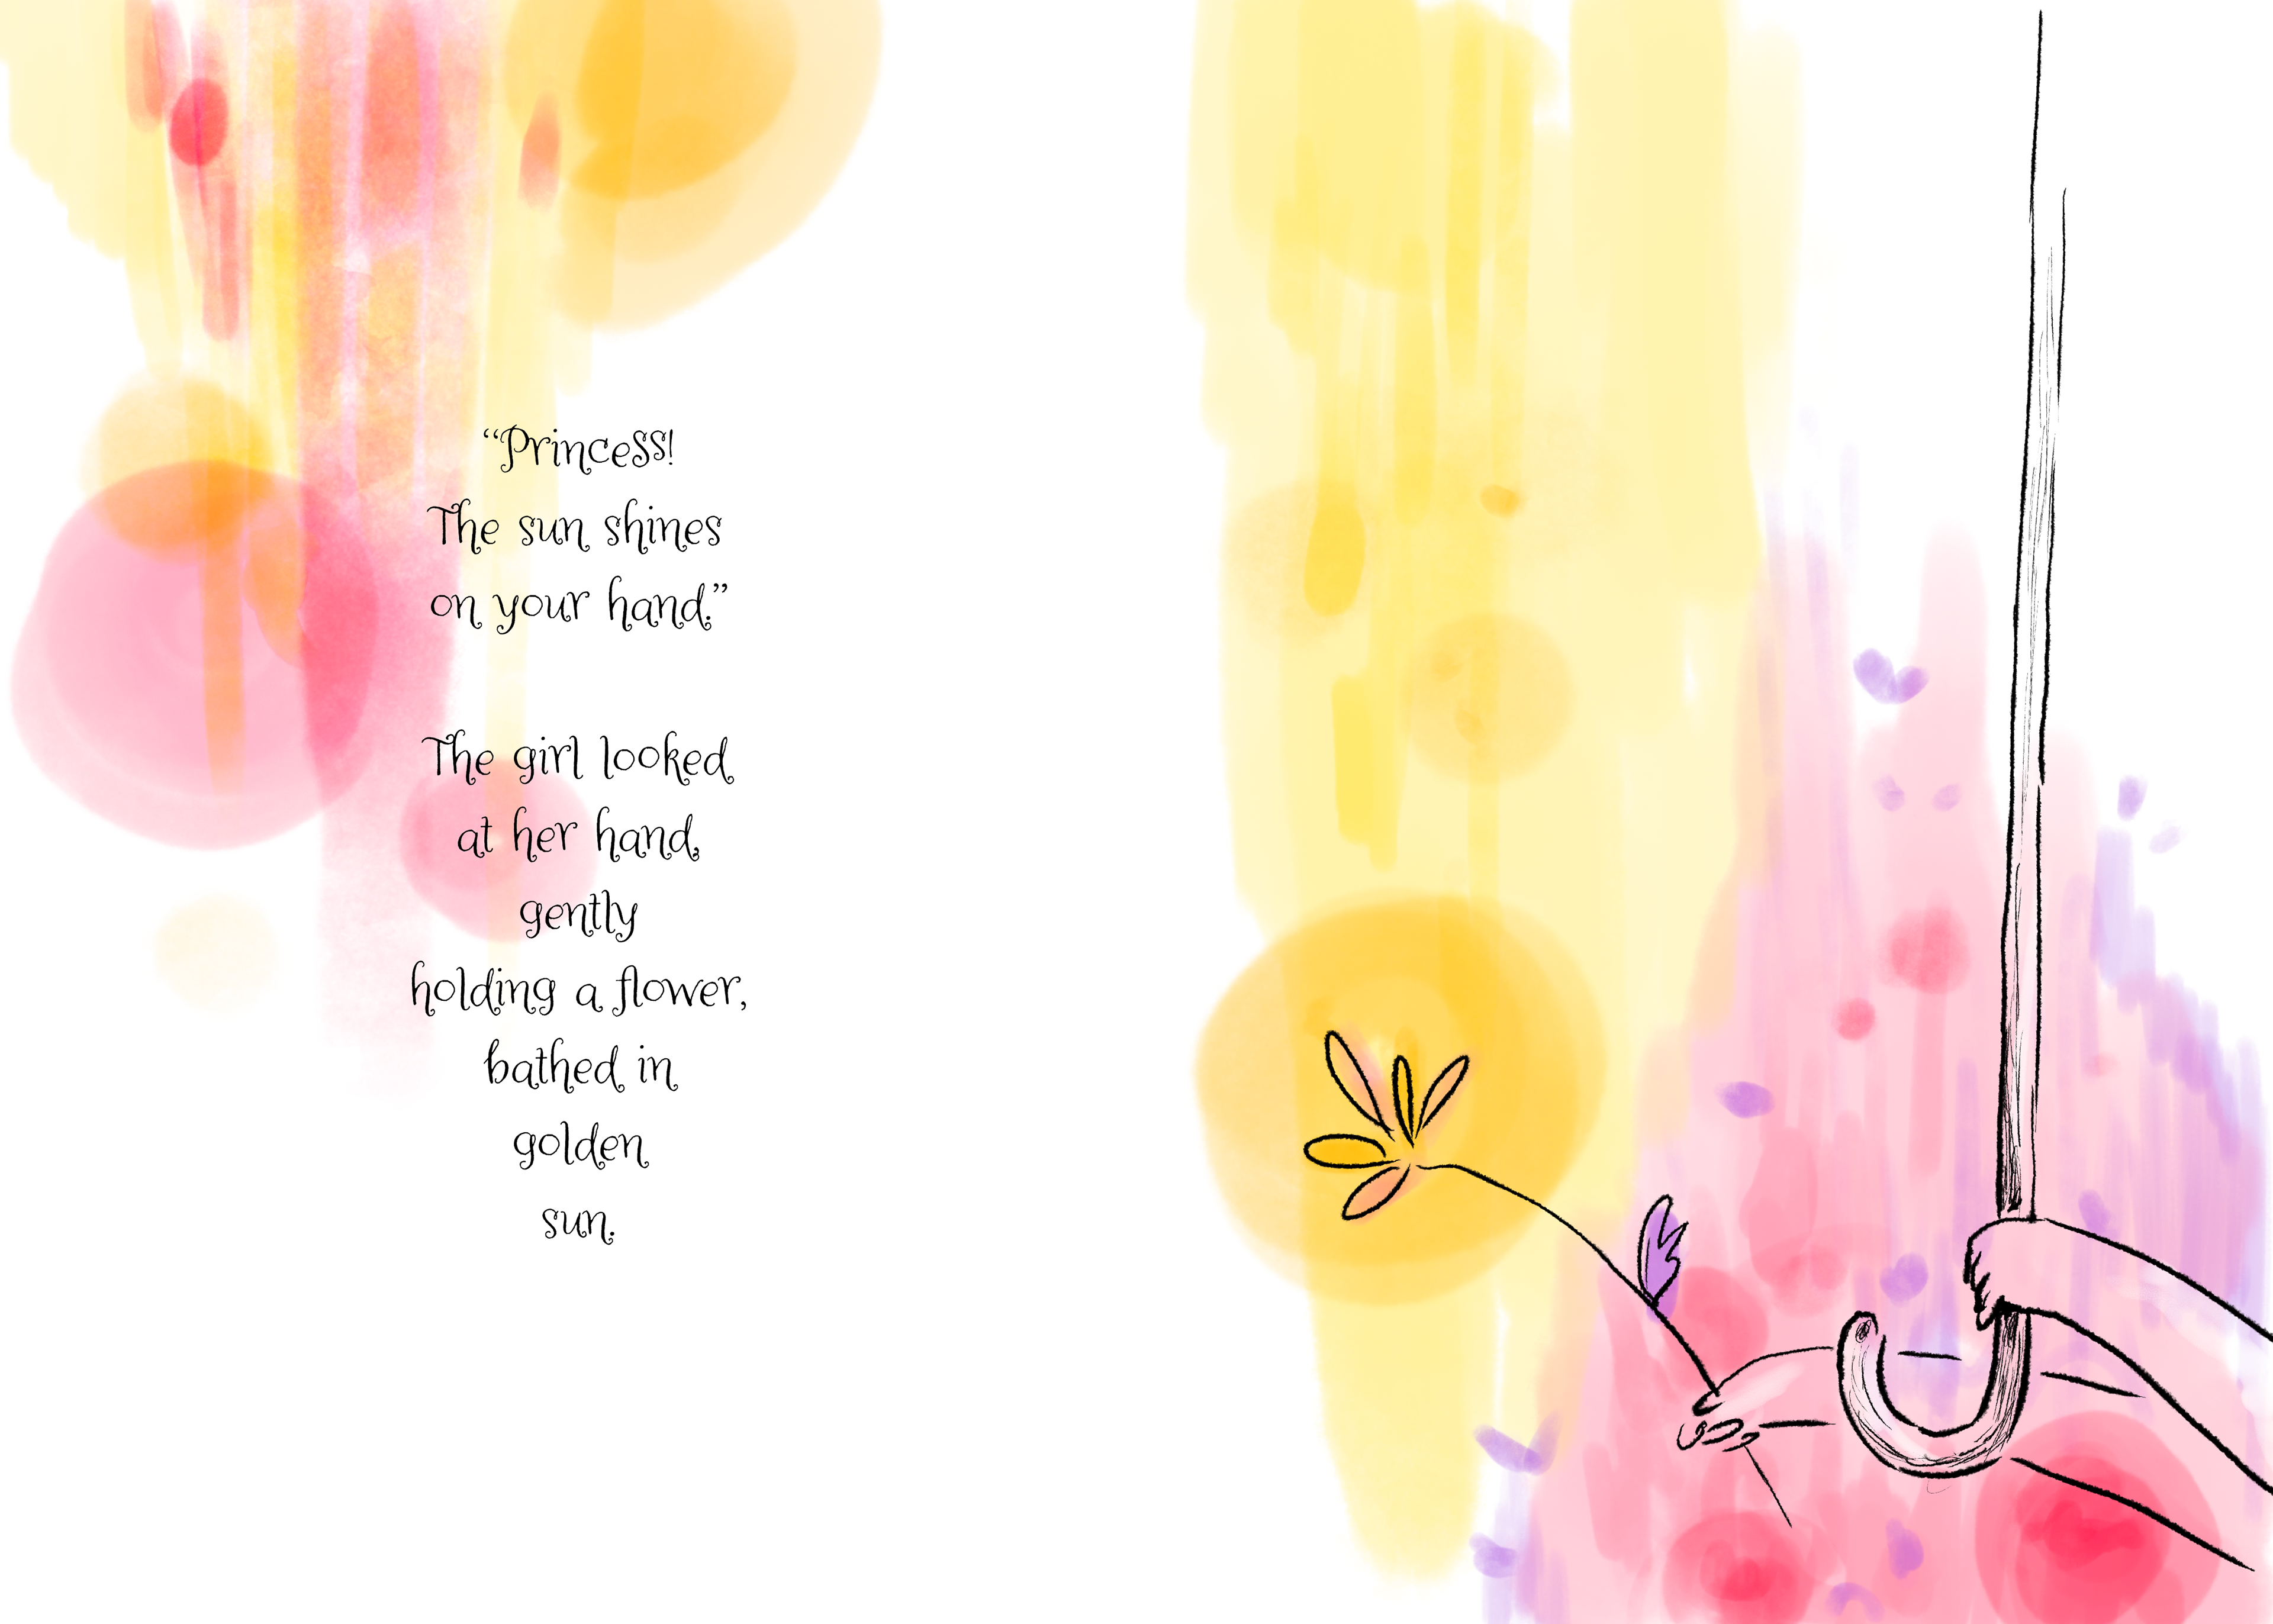 “Princess!
The sun shines
on your hand.”
The girl looked
at her hand,
gently
holding a flower,
bathed in
golden
sun.